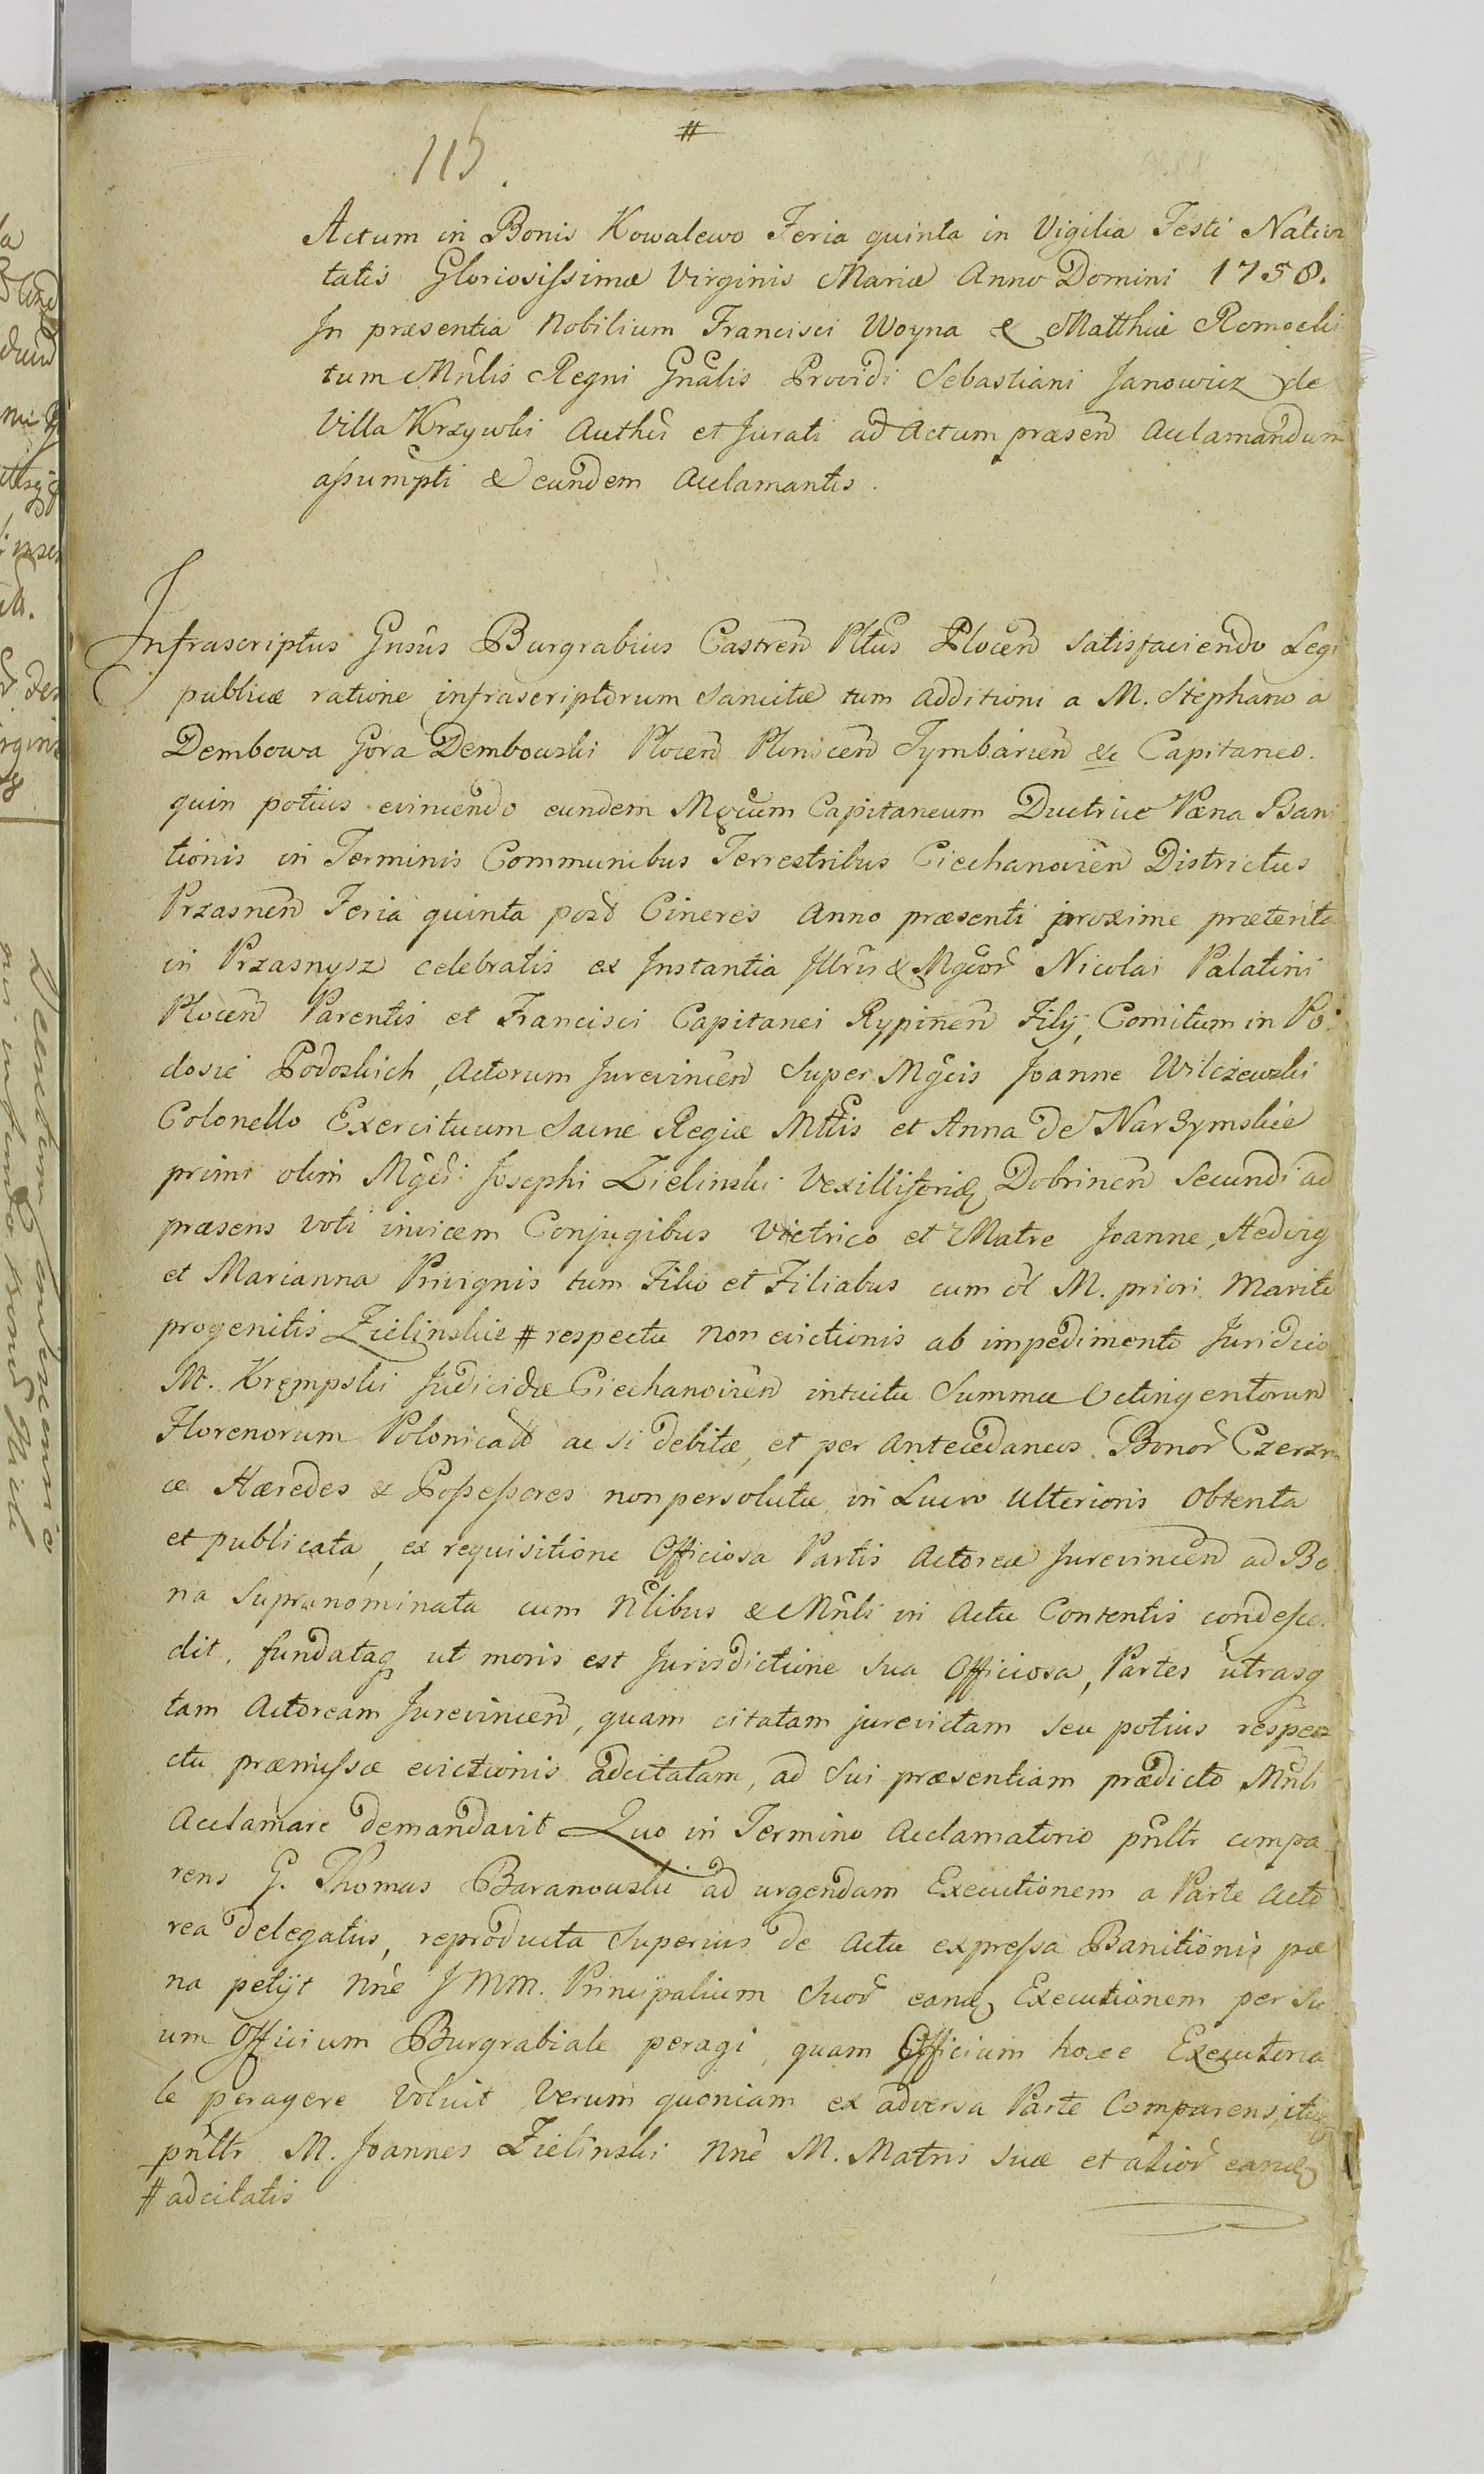 115.
#
Actum in Bonis Kowalewo Feria quinta in Vigilia Festi Nativi
tatis Gloriosissimæ Virginis Mariæ Anno Domini 1758.
In præsentia Nobilium Francisci Woyna & Matthiæ Romocki
tum Mnlis Regni Gnalis Providi Sebastiani Janowicz de
Villa Krzywki Authci et Jurati ad Actum præsen Acclamandum
assumpti & eundem Acclamantis.
Infrascriptus Gnsus Burgrabius Castren Pltus Plocen satisfaciendo Legi
publicæ ratione infrascriptorum sancitæ tum additioni a M. Stephano a
Dembowa Gora Dembowski Plocen Plonscen Tymbarcen &c Capitaneo.
quin potius evincendo eundem Mgcum Capitaneum Ductrice Pœna Bani
tionis in Terminis Communibus Terrestribus Ciechanovien Districtus
Przasnen Feria quinta post Cineres Anno præsenti proxime præterita
in Przasnysz celebratis ex Instantia Illris & Mgcor Nicolai Palatini
Plocen Parentis et Francisci Capitanei Rypinen Filij, Comitum in Po
dosie Podoskich, Actorum Jurevincen super Mgcis Joanne Wilczewski
Colonello Exercituum Sacræ Regiæ Mttis et Anna de Narzymskie
primi olim Mgci Josephi Zielinski Vexilliferidæ Dobrinen Secundi ad
præsens voti invicem Conjugibus Victrico et Matre Joanne, Hedvig
et Marianna Privignis tum Filio et Filiabus cum ol M. priori Marito
progenitis Zielinskie # respectu non evictionis ab impedimento Juridico
M. Krępski Judicidæ Ciechanovien intuitu Summæ Octingentorum
Florenorum Polonical ac si debitæ, et per Antecedaneos Bonor Czerzni
cæ Hæredes & Possessores non persolutæ in Lucro Ulterioris obtenta
et publicata, ex requisitione Officiosa Partis Actoreæ Jurevincen ad Bo
na Supranominata cum Nlibus & Mnli in Actu Contentis condescen
dit, fundataq ut moris est Jurisdictione sua Officiosa, Partes utrasq
tam Actoream Jurevincen, quam citatam jurevictam seu potius respe
ctu præmissæ evictionis adcitatam, ad sui præsentiam prædicto Mnli
Acclamare demandavit Quo in Termino Acclamatorio pnltr compa
rens G. Thomas Baranowski ad urgendam Executionem a Parte Acto
rea delegatus, reproducta superius de Actu expressa Banitionis pœ
na petijt Nne JMM. Principalium Suor eandq Executionem per Su
um Officium Burgrabiale peragi, quam Officium hocce Executoria
le peragere voluit, Verum quoniam ex adversa Parte Comparens, itiq
pnltr M. Joannes Zielinski Nne M. Matris suæ et alior eandq
# adcitatis